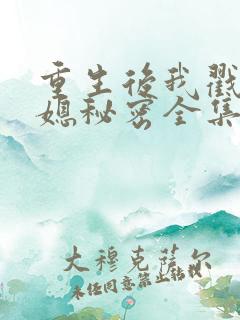 重生后我戳
媳秘密全集
大穆克萨尔
未经同意禁止转载